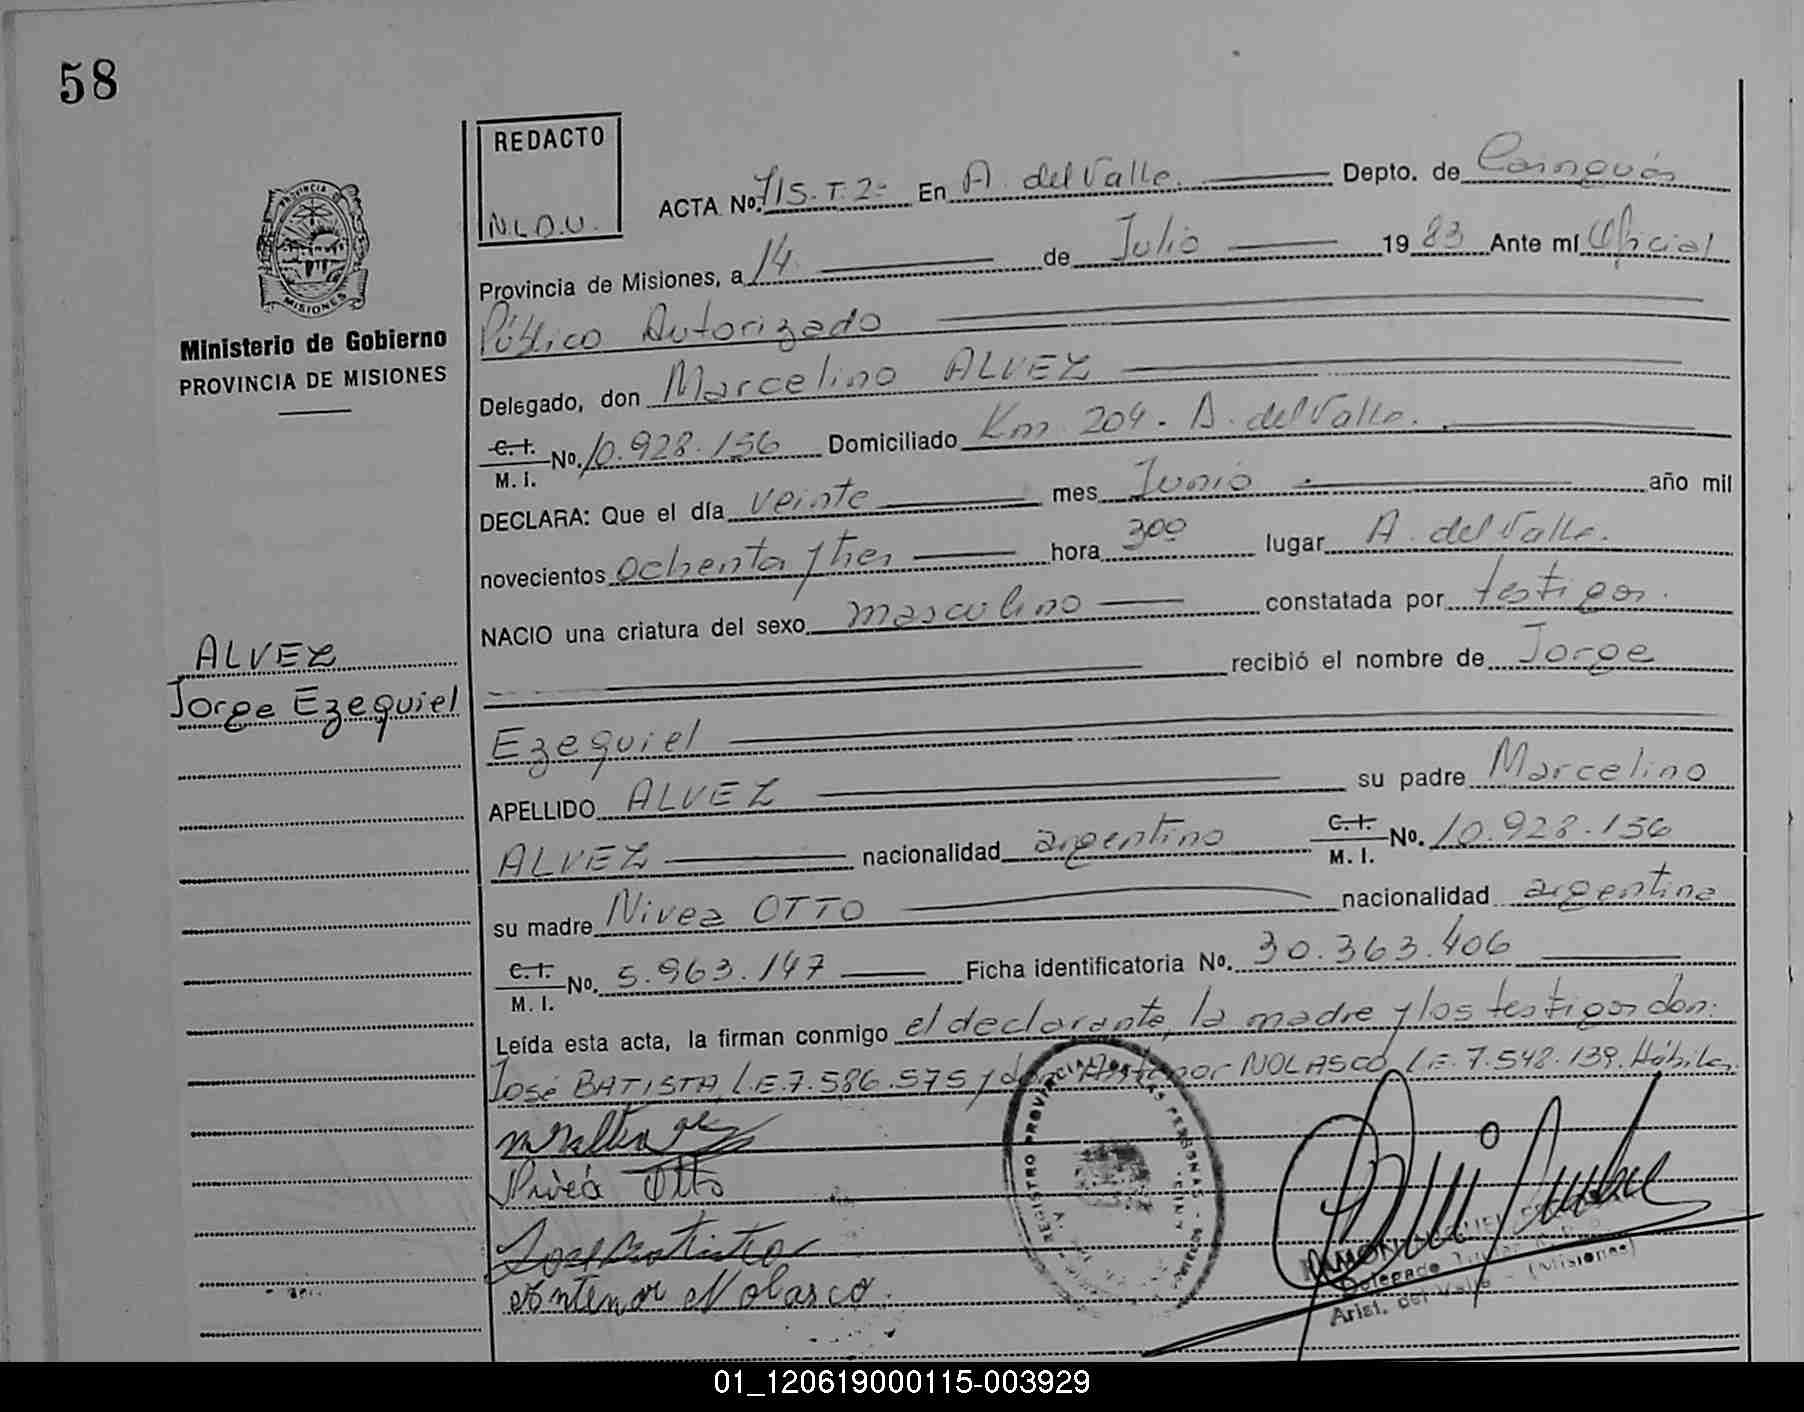 58
REDACTO
N.L.D.U.
ACTA No. 715-T.2º En A. del Valle. Depto. de Cainguás
PROVINCIA DE
MISIONES
Provincia de Misiones, a 14 de Julio 19 83 Ante mí Oficial
Ministerio de Gobierno
PROVINCIA DE MISIONES
Público Autorizado
Delegado, don Marcelino ALVEZ
C. I. M. I. No. 10.928.156 Domiciliado Km 204 - A. del Valle.
DECLARA: Que el día veinte mes Junio año mil
novecientos ochenta y tres hora 300 lugar A. del Valle.
NACIO una criatura del sexo masculino constatada por testigos.
recibió el nombre de Jorge
ALVEZ
Jorge Ezequiel
Ezequiel
APELLIDO ALVEZ su padre Marcelino
ALVEZ nacionalidad argentino C. I. M. I. No. 10.928.156
su madre Nivea OTTO nacionalidad argentina
C. I. M. I. No. 5.963.147 Ficha identificatoria No. 30.363.406
Leída esta acta, la firman conmigo el declarante, la madre y los testigos don:
José BATISTA, L.E.7.586.575 y don Antenor NOLASCO, L.E. 7.548.139. Hábiles.
Nivea Otto
José Batista
Antenor Nolasco.
REGISTRO PROVINCIAL DE LAS PERSONAS
Delegado Titular
Arist. del Valle - (Misiones)
01_120619000115-003929